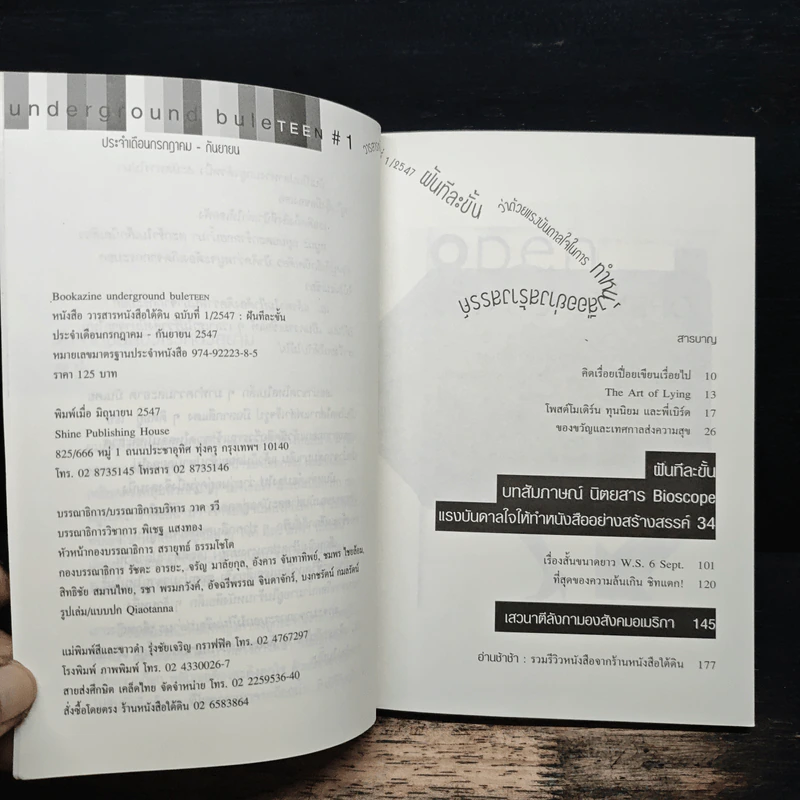 underground buleTEEN #1
ประจำเดือนกรกฎาคม - กันยายน
Bookazine underground buleTEEN
หนังสือ วารสารหนังสือใต้ดิน ฉบับที่ 1/2547 : ฝันทีละขั้น
ประจำเดือนกรกฎาคม - กันยายน 2547
หมายเลขมาตรฐานประจำหนังสือ 974-92223-8-5
ราคา 125 บาท
พิมพ์เมื่อ มิถุนายน 2547
Shine Publishing House
825/666 หมู่ 1 ถนนประชาอุทิศ ทุ่งครุ กรุงเทพฯ 10140
โทร. 02 8735145 โทรสาร 02 8735146
บรรณาธิการ/บรรณาธิการบริหาร วาด รวี
บรรณาธิการวิชาการ พิเชฐ แสงทอง
หัวหน้ากองบรรณาธิการ สรายุทธ์ ธรรมโชโต
กองบรรณาธิการ รัชตะ อารยะ, จรัญ มาลัยกุล, อังคาร จันทาทิพย์, ชมพร ไชยล้อม,
สิทธิชัย สมานไทย, รชา พรมภวังค์, อัจฉรีพรรณ จินดาจักร์, บงกชรัตน์ กมลรัตน์
รูปเล่ม/แบบปก Qiaotanna
แม่พิมพ์สีและขาวดำ รุ่งชัยเจริญ กราฟฟิค โทร. 02 4767297
โรงพิมพ์ ภาพพิมพ์ โทร. 02 4330026-7
สายส่งศึกษิต เคล็ดไทย จัดจำหน่าย โทร. 02 2259536-40
สั่งซื้อโดยตรง ร้านหนังสือใต้ดิน 02 6583864
1/2547 ฝันทีละขั้น ว่าด้วยแรงบันดาลใจในการ ทำหนังสืออย่างสร้างสรรค์
สารบาญ
คิดเรื่อยเปื่อยเขียนเรื่อยไป 10
The Art of Lying 13
โพสต์โมเดิร์น ทุนนิยม และพี่เบิร์ด 17
ของขวัญและเทศกาลส่งความสุข 26
ฝันทีละขั้น
บทสัมภาษณ์ นิตยสาร Bioscope
แรงบันดาลใจให้ทำหนังสืออย่างสร้างสรรค์ 34
เรื่องสั้นขนาดยาว W.S. 6 Sept. 101
ที่สุดของความล้นเกิน ชิทแตก! 120
เสวนาตีลังกามองสังคมอเมริกา 145
อ่านช้าช้า : รวมรีวิวหนังสือจากร้านหนังสือใต้ดิน 177